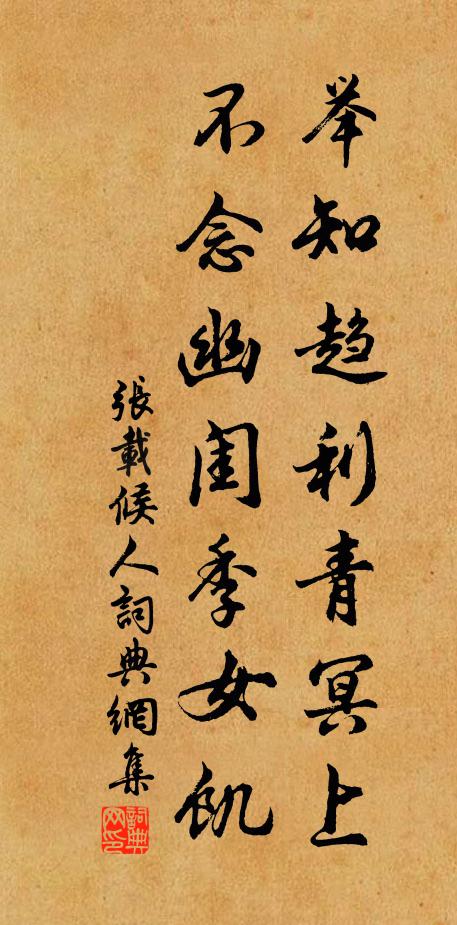 举知趋利青冥上
不念幽闺季女饥
張載候人詞典網集
詞典网印